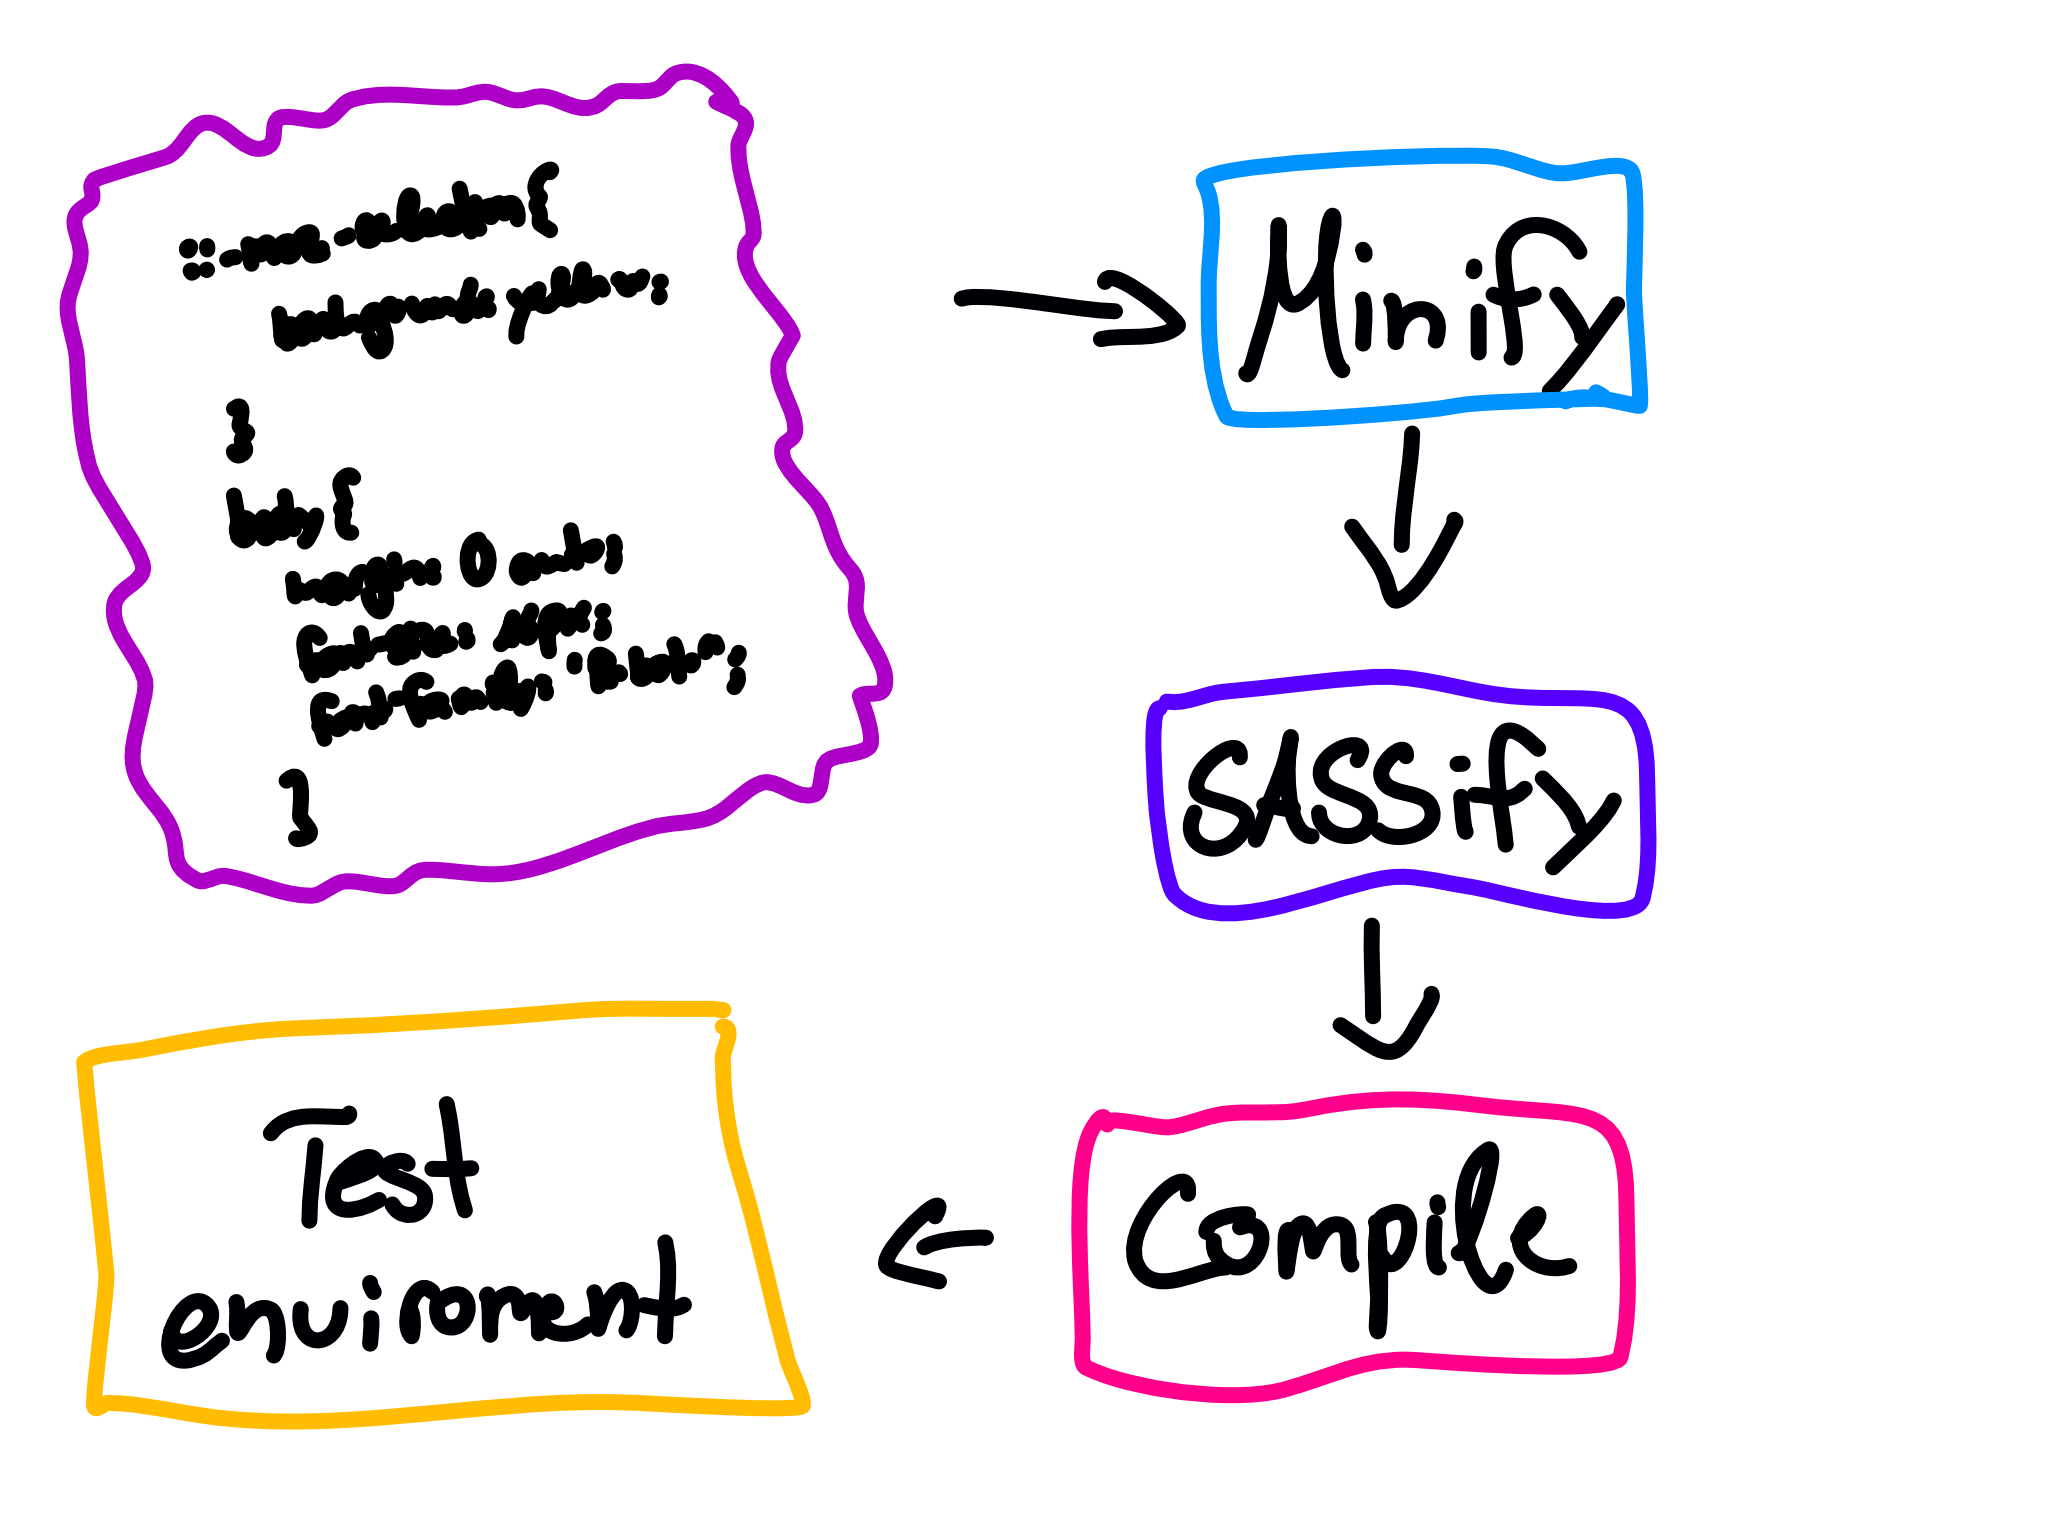 ::-moz-selection{
background: yellow;
}
body{
margin: 0 auto;
font-family: "Roboto";
}
Minify
SASSify
Compile
Test
enviroment